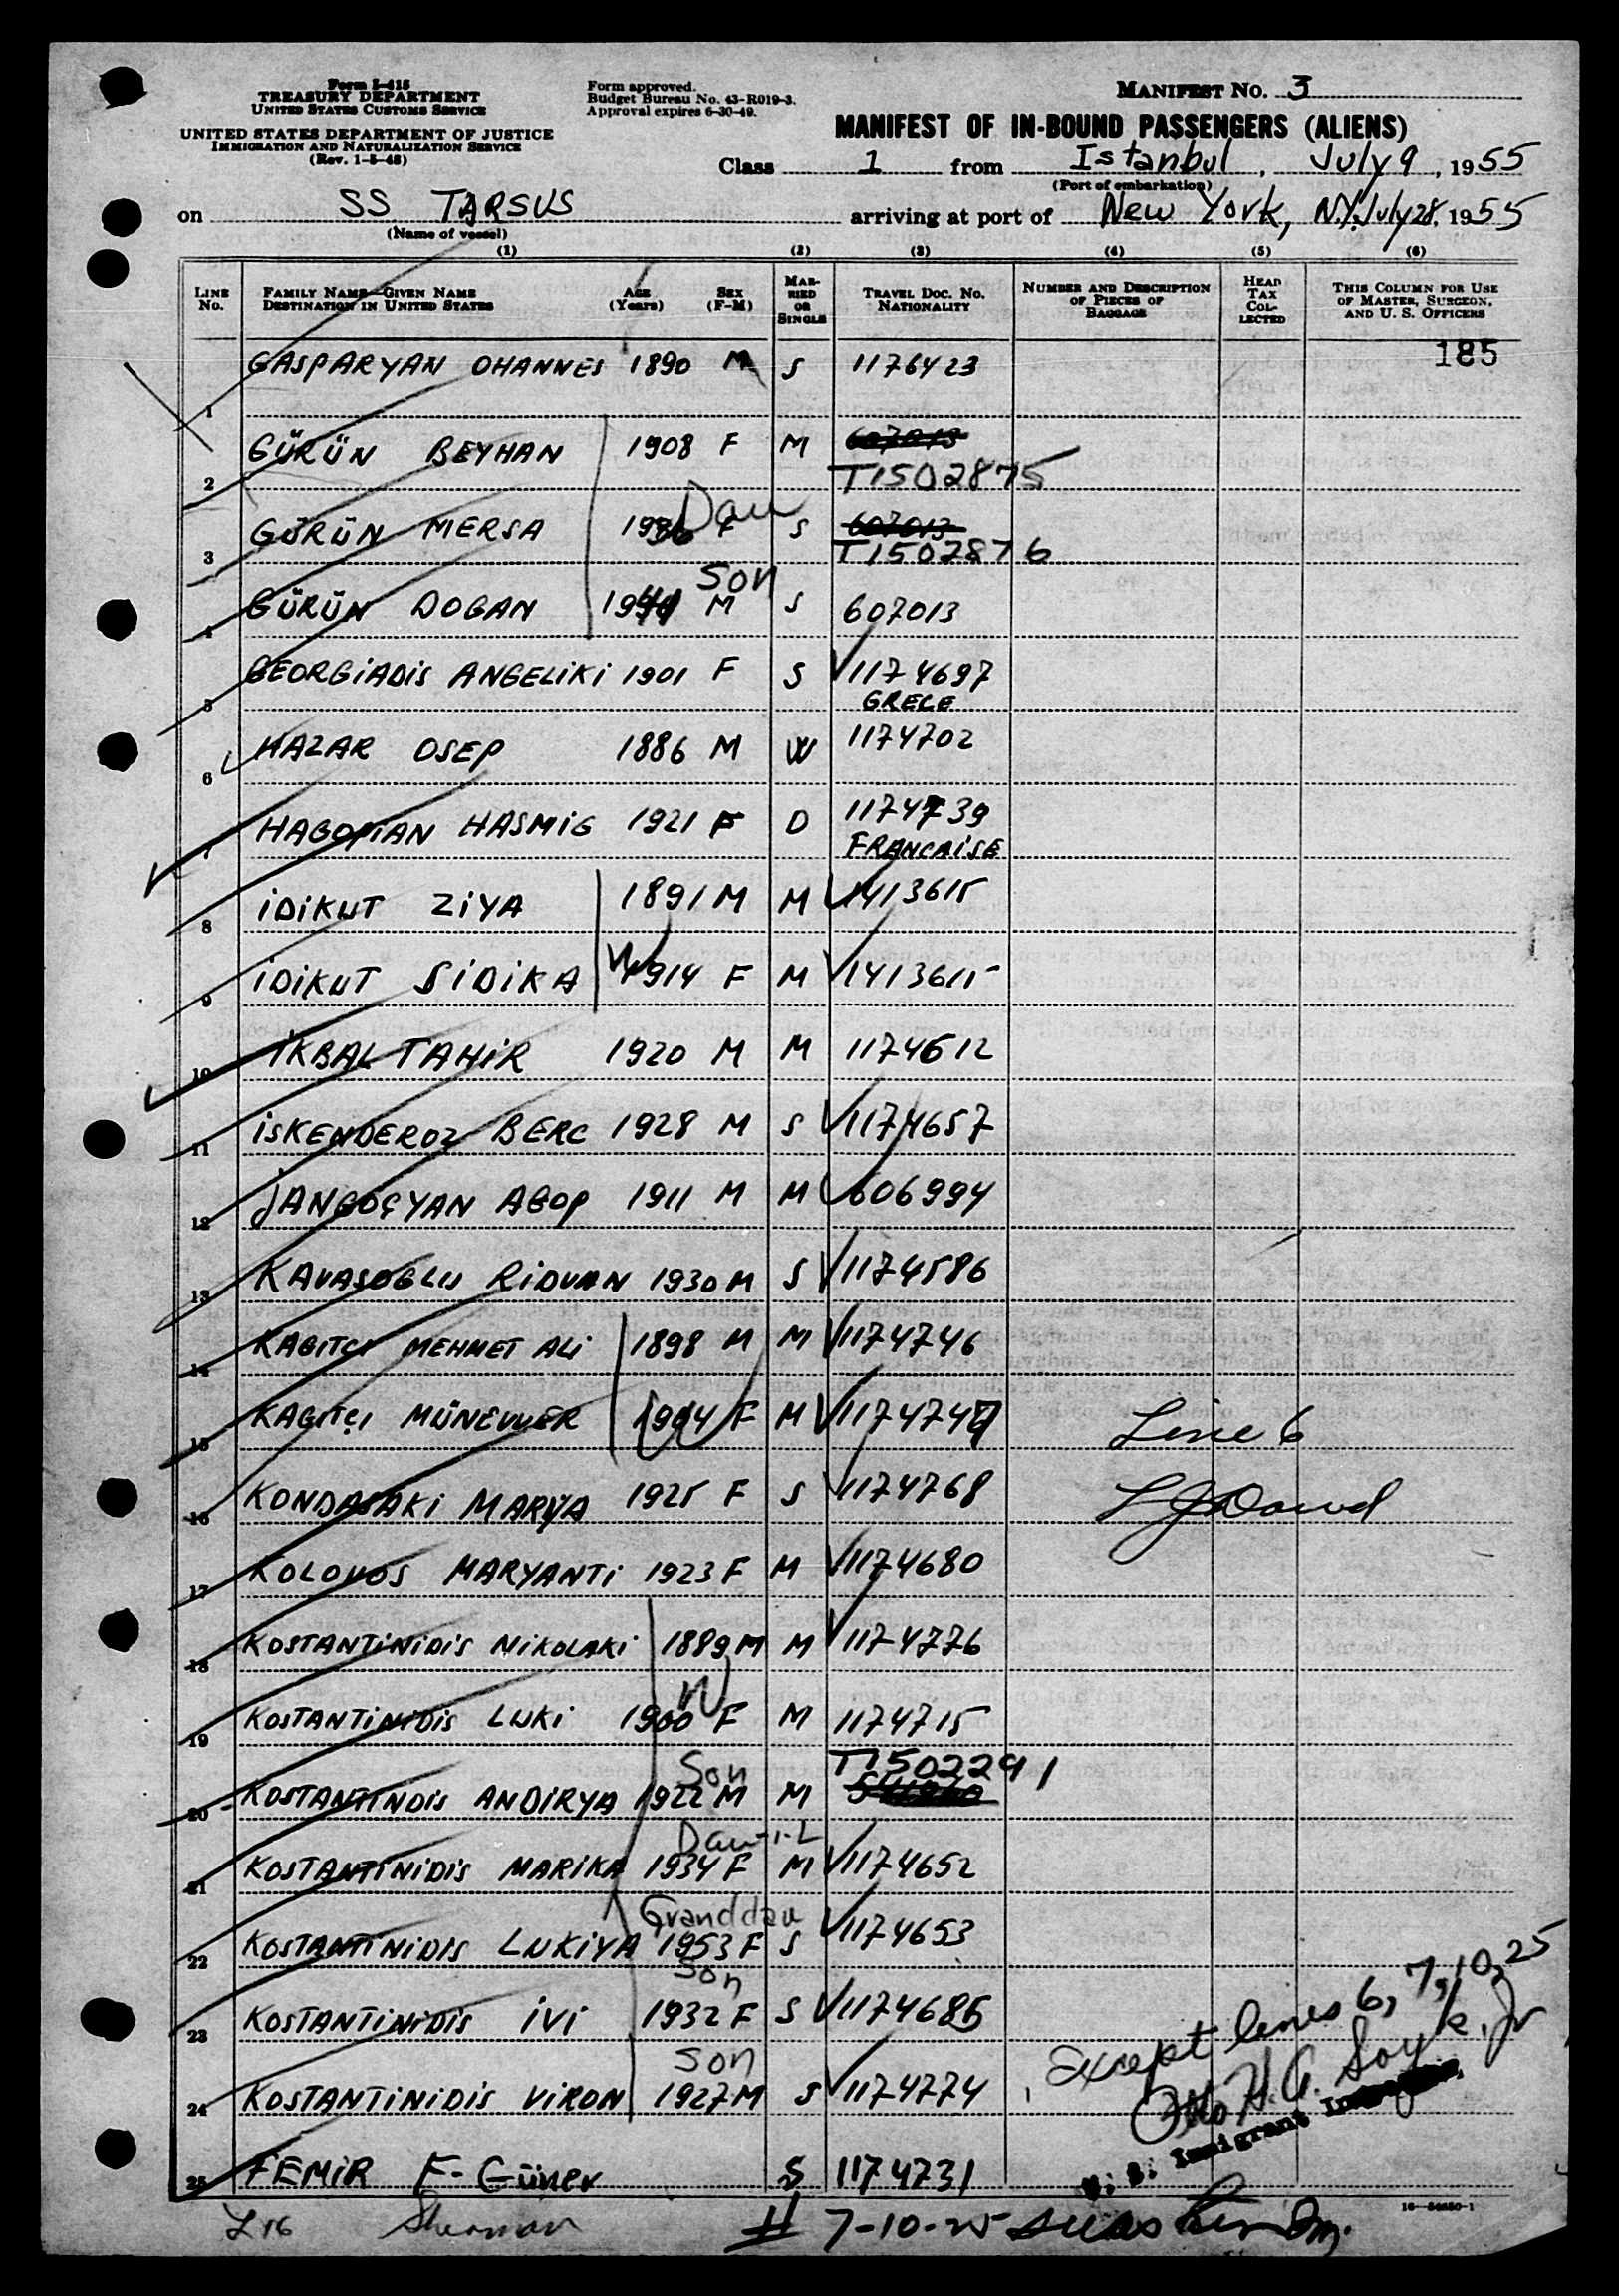 Form I-418
TREASURY DEPARTMENT
UNITED STATES CUSTOMS SERVICE
UNITED STATES DEPARTMENT OF JUSTICE
IMMIGRATION AND NATURALIZATION SERVICE
(Rev. 1-5-48)
Form approved.
Budget Bureau No. 43-R019-3.
Approval expires 6-30-49.
MANIFEST NO. 3
MANIFEST OF IN-BOUND PASSENGERS (ALIENS)
Class 1 from Istanbul, July 9, 1955
(Port of embarkation)
on SS TARSUS arriving at port of New York, N.Y. July 28, 1955
(Name of vessel)
(1) (2) (3) (4) (5) (6)
LINE No. FAMILY NAME—GIVEN NAME DESTINATION IN UNITED STATES AGE (Years) SEX (F-M) MARRIED OR SINGLE TRAVEL DOC. NO. NATIONALITY NUMBER AND DESCRIPTION OF PIECES OF BAGGAGE HEAD TAX COLLECTED THIS COLUMN FOR USE OF MASTER, SURGEON, AND U. S. OFFICERS
185
1 GASPARYAN OHANNES 1890 M S 1176423
2 GÜRÜN BEYHAN 1908 F M 607013
T1502875
Dau
3 GÜRÜN MERSA 1936 F S 607013
T1502876
Son
4 GÜRÜN DOGAN 1941 M S 607013
5 GEORGiADiS ANGELiKi 1901 F S 1174697
GRECE
6 HAZAR OSEP 1886 M W 1174702
7 HAGOPIAN HASMiG 1921 F D 1174739
FRANCAiSE
8 iDiKUT ZiYA 1891 M M 1413615
W
9 iDiKUT SiDiKA 1914 F M 1413615
10 iKBAL TAHiR 1920 M M 1174612
11 iSKENDEROZ BERC 1928 M S 1174657
12 JANGOÇYAN AGOP 1911 M M 606994
13 KAVASOGLU RiDVAN 1930 M S 1174586
14 KAGITCI MEHMET ALi 1898 M M 1174746
15 KAGITÇI MÜNEVVER 1904 F M 1174747
Line 6
16 KONDASAKi MARYA 1925 F S 1174768
L J Dowd
17 KOLOVOS MARYANTi 1923 F M 1174680
18 KOSTANTiNiDiS NiKOLAKi 1889 M M 1174776
W
19 KOSTANTiNiDiS LUKi 1900 F M 1174715
Son T1502291
20 KOSTANTINDiS ANDiRYA 1922 M M
Dau-i-L
21 KOSTANTiNiDiS MARiKA 1934 F M 1174652
Granddau
22 KOSTANTiNiDiS LUKiYA 1953 F S 1174653
Son
23 KOSTANTiNiDiS iVi 1932 F S 1174685
Son
24 KOSTANTiNiDiS ViRON 1927 M S 1174774
Except lines 6, 7, 10, 25
U. S. Immigrant Inspector
25 FEMiR F. Güner S 1174731
16—54650-1
L 16 Sherman # 7-10-25